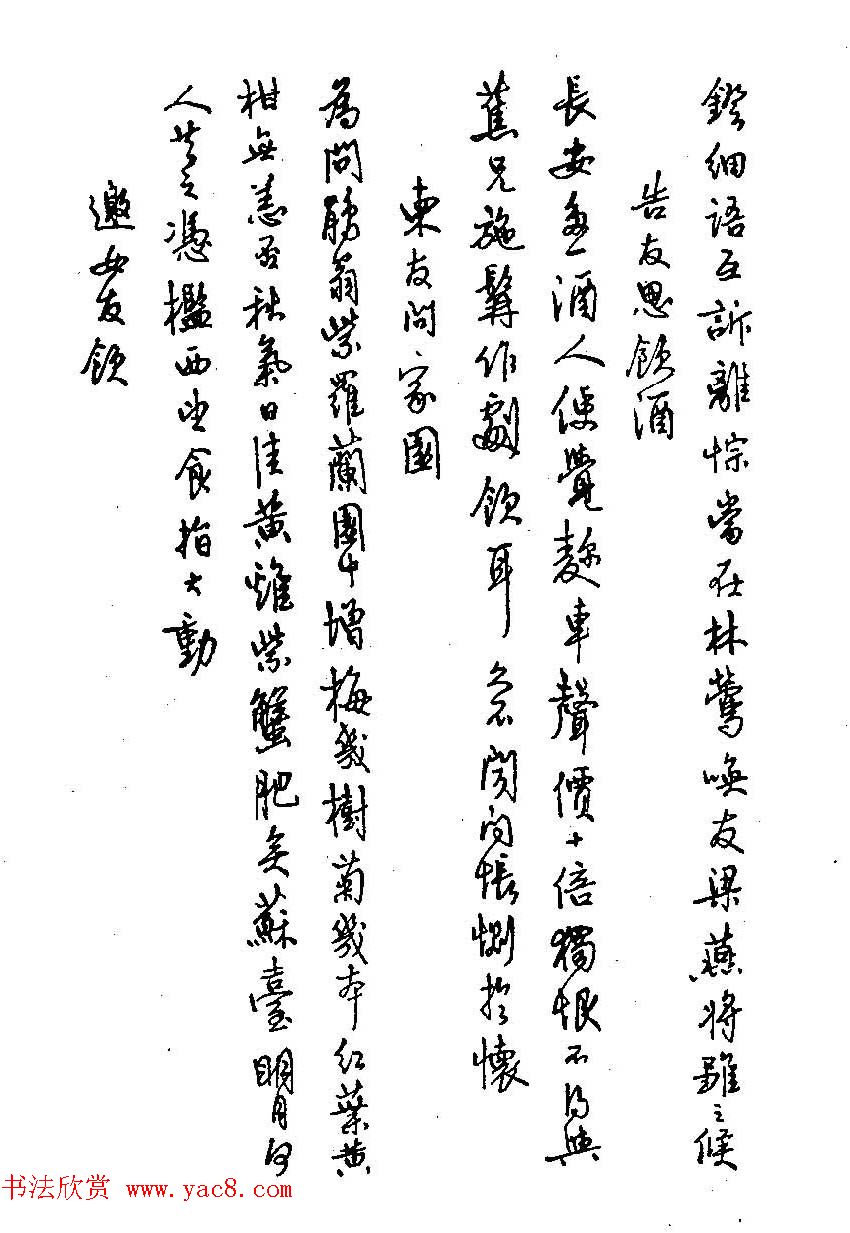 鐙細語互訴離悰當在林鶯喚友梁燕將雛之候
告友思飲酒
長安無酒人便覺麴車聲價十倍獨恨不得與
蕉兄施髯作劇飲耳久不聞問悵惘於懷
柬友問家園
為問觴翁紫羅蘭園中增梅幾樹菊幾本紅葉黃
柑無恙否秋氣日佳黃雞紫蟹肥矣蘇臺明月何
人共之憑檻西望食指大動
邀女友飲
书法欣赏 www.yac8.com